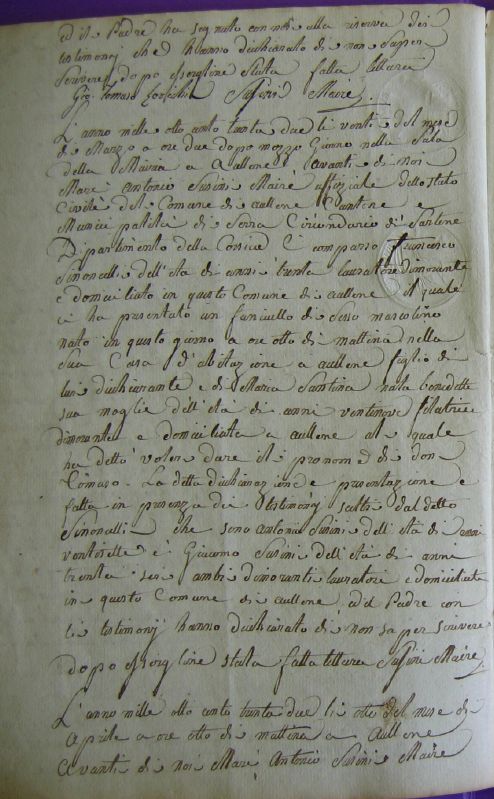 ed il Padre ha segnato con noi alla riserva dei
testimonj che hanno dichiarato di non saper
scrivere dopo essergline stata fatta lettura
Gio Tomaso Susini Maire
L'anno mille otto cento trenta due li venti del mese
di Marzo a ore due dopo mezzo Giorno nella Sala
della Mairia a aullone, avanti di noi
Mare Antonio Susini Maire uffiziale dello stato
Civile del Comune di aullone Cantone e
Municipalità di Serra Circondario di Sartene
Dipartimento della Corsica è comparso Francesco
Simonelli dell'età di anni trenta lauratore dimorante
e domiciliato in questo Comune di aullone il quale
ci ha presentato un fanciullo di sesso mascolino
nato in questo giorno a ore otto di mattina nella
sua Casa d'abitazione a aullone figlio di
lui dichiarante e di Maria Santina nata benedetti
sua moglie dell'età di anni ventinove filatrice
dimorante e domiciliata a aullone al quale
ha detto voler dare il pronome di don
Tomaso. La detta dichiarazione e presentazione è
fatta in presenza di testimonj scelti dal detto
Simonelli che sono Antonio Susini dell'età di anni
ventisette e Giacomo Susini dell'età di anni
trenta sei ambi dimoranti lauratori e domiciliati
in questo Comune di aullone ed il Padre con
li testimonj hanno dichiarato di non saper scrivere
dopo essergline stata fatta lettura Susini Maire
L'anno mille otto cento trenta due li otto del mese di
Aprile a ore otto di mattina a aullone
avanti di noi Mare Antonio Susini Maire